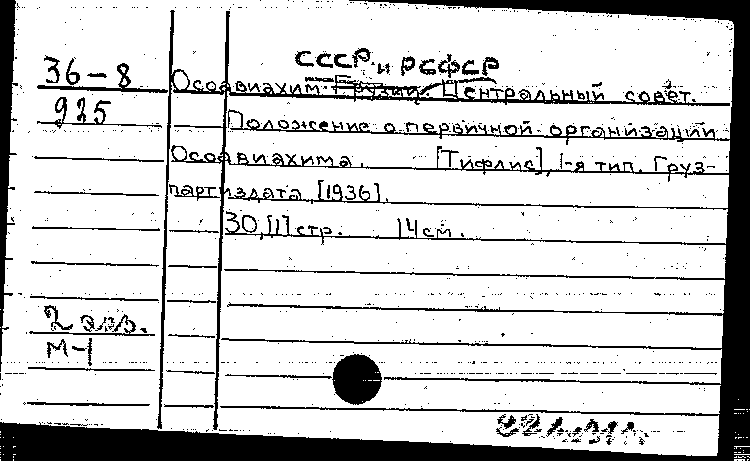 СССР и РСФСР
36-8
Осоавиахим. Грузии. Центральный совет.
925
Положение о первичной организации
Осоавиахима. [Тифлис], 1-я тип. Груз-
партиздата, [1936].
30,[1] стр. 14 см.
2 экз.
М-1